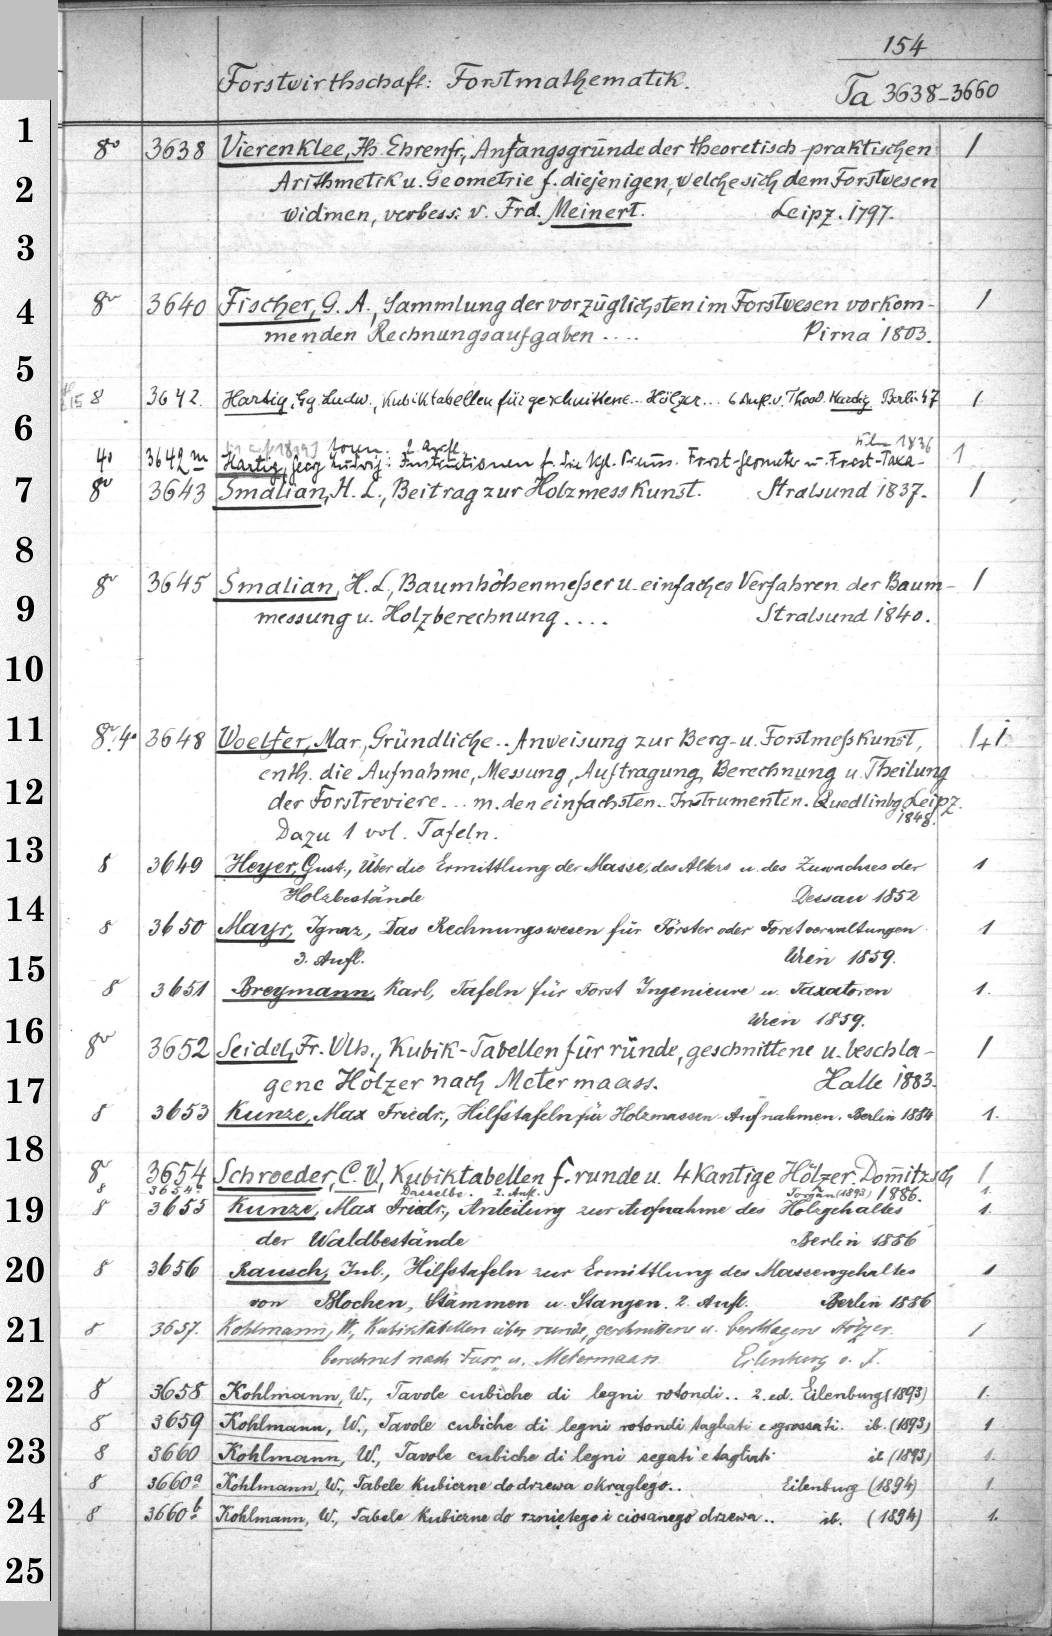 154
Forstwirthschaft: Forstmathematik.
Ta 3638-3660
1
8° 3638 Vierenklee, Jh. Ehrenfr., Anfangsgründe der theoretisch-praktischen 1
2
Arithmetik u. Geometrie f. diejenigen, welche sich dem Forstwesen
widmen, verbess. v. Frd. Meinert. Leipz. 1797.
3
4
8° 3640 Fischer, G. A., Sammlung der vorzüglichsten im Forstwesen vorkom- 1
menden Rechnungsaufgaben .... Pirna 1803.
5
8 3642. Hartig, Gg. Ludw., Kubiktabellen für geschnittene.. Hölzer... 6 Aufl. v. Theod. Hartig. Berlin 47 1
6
2 Aufl. 1836
4° 3642m Hartig, Georg Ludwig: Instructionen f. die Kgl. Preuss. Forst-Geometer u. Forst-Taxa- 1
7
8° 3643 Smalian, H. L., Beitrag zur Holzmesskunst. Stralsund 1837. 1
8
8° 3645 Smalian, H. L., Baumhöhenmeßer u. einfaches Verfahren der Baum- 1
9
messung u. Holzberechnung .... Stralsund 1840.
10
11
8°, 4° 3648 Woelfer, Mar., Gründliche .. Anweisung zur Berg- u. Forstmeßkunst, 1+1
enth. die Aufnahme, Messung, Auftragung, Berechnung u. Theilung
12
der Forstreviere ... m. den einfachsten.. Instrumenten. Quedlinbg. Leipz.
1848.
Dazu 1 vol. Tafeln.
13
8 3649 Heyer, Gust., Über die Ermittlung der Masse, des Alters u. des Zuwachses der 1
Holzbestände Dessau 1852
14
8 3650 Mayr, Ignaz, Das Rechnungswesen für Förster oder Forstverwaltungen 1
3. Aufl. Wien 1859.
15
8 3651 Breymann, Karl, Tafeln für Forst Ingenieure u. Taxatoren 1.
Wien 1859.
16
8° 3652 Seidel, Fr. Wlh., Kubik-Tabellen für runde, geschnittene u. beschla- 1
gene Hölzer nach Metermaass. Halle 1883.
17
8 3653 Kunze, Max Friedr., Hilfstafeln für Holzmassen-Aufnahmen. Berlin 1884 1.
18
8° 3654 Schroeder, C. W., Kubiktabellen f. runde u. 4 kantige Hölzer. Dom̄itzsch 1
1886.
8 3654a Dasselbe. 2. Aufl. Torgau (1893) 1.
19
8 3655 Kunze, Max Friedr., Anleitung zur Aufnahme des Holzgehaltes 1.
der Waldbestände Berlin 1886
20
8 3656 Rausch, Jul., Hilfstafeln zur Ermittlung des Massengehaltes 1
von Blochen, Stämmen u. Stangen. 2. Aufl. Berlin 1886
21
8 3657. Kohlmann, W., Kubiktabellen über runde, geschnittene u. beschlagene Hölzer. 1
berechnet nach Fuss u. Metermaass. Eilenburg o. J.
22
8 3658 Kohlmann, W., Tavole cubiche di legni rotondi.. 2. ed. Eilenburg (1893) 1.
8 3659 Kohlmann, W., Tavole cubiche di legni rotondi tagliati e sgrossati. ib. (1893) 1
23
8 3660 Kohlmann, W., Tavole cubiche di legni segati e tagliati ib (1893) 1.
8 3660a Kohlmann, W., Tabele kubiczne do drzewa okrągłego.. Eilenburg (1894) 1
24
8 3660b Kohlmann, W., Tabele kubiczne do rzniętego i ciosanego drzewa.. ib. (1894) 1.
25